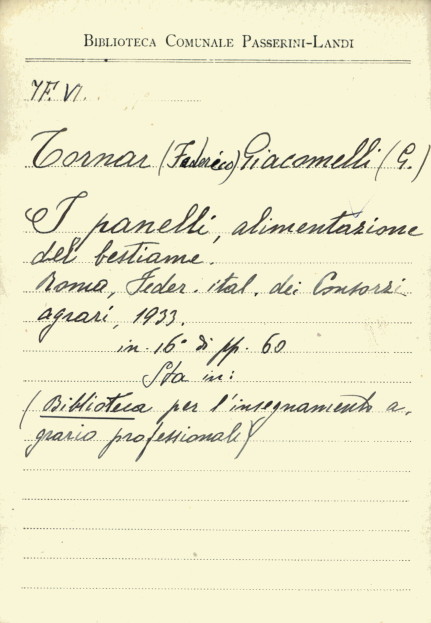 BIBLIOTECA COMUNALE PASSERINI-LANDI
7F. VI.
Tornar (Federico) Giacomelli (G.)
I panelli, alimentazione
del bestiame.
Roma, Feder. ital. dei Consorzi
agrari, 1933.
in-16° di pp. 60
Sta in:
(Biblioteca per l'insegnamento a-
grario professionale)